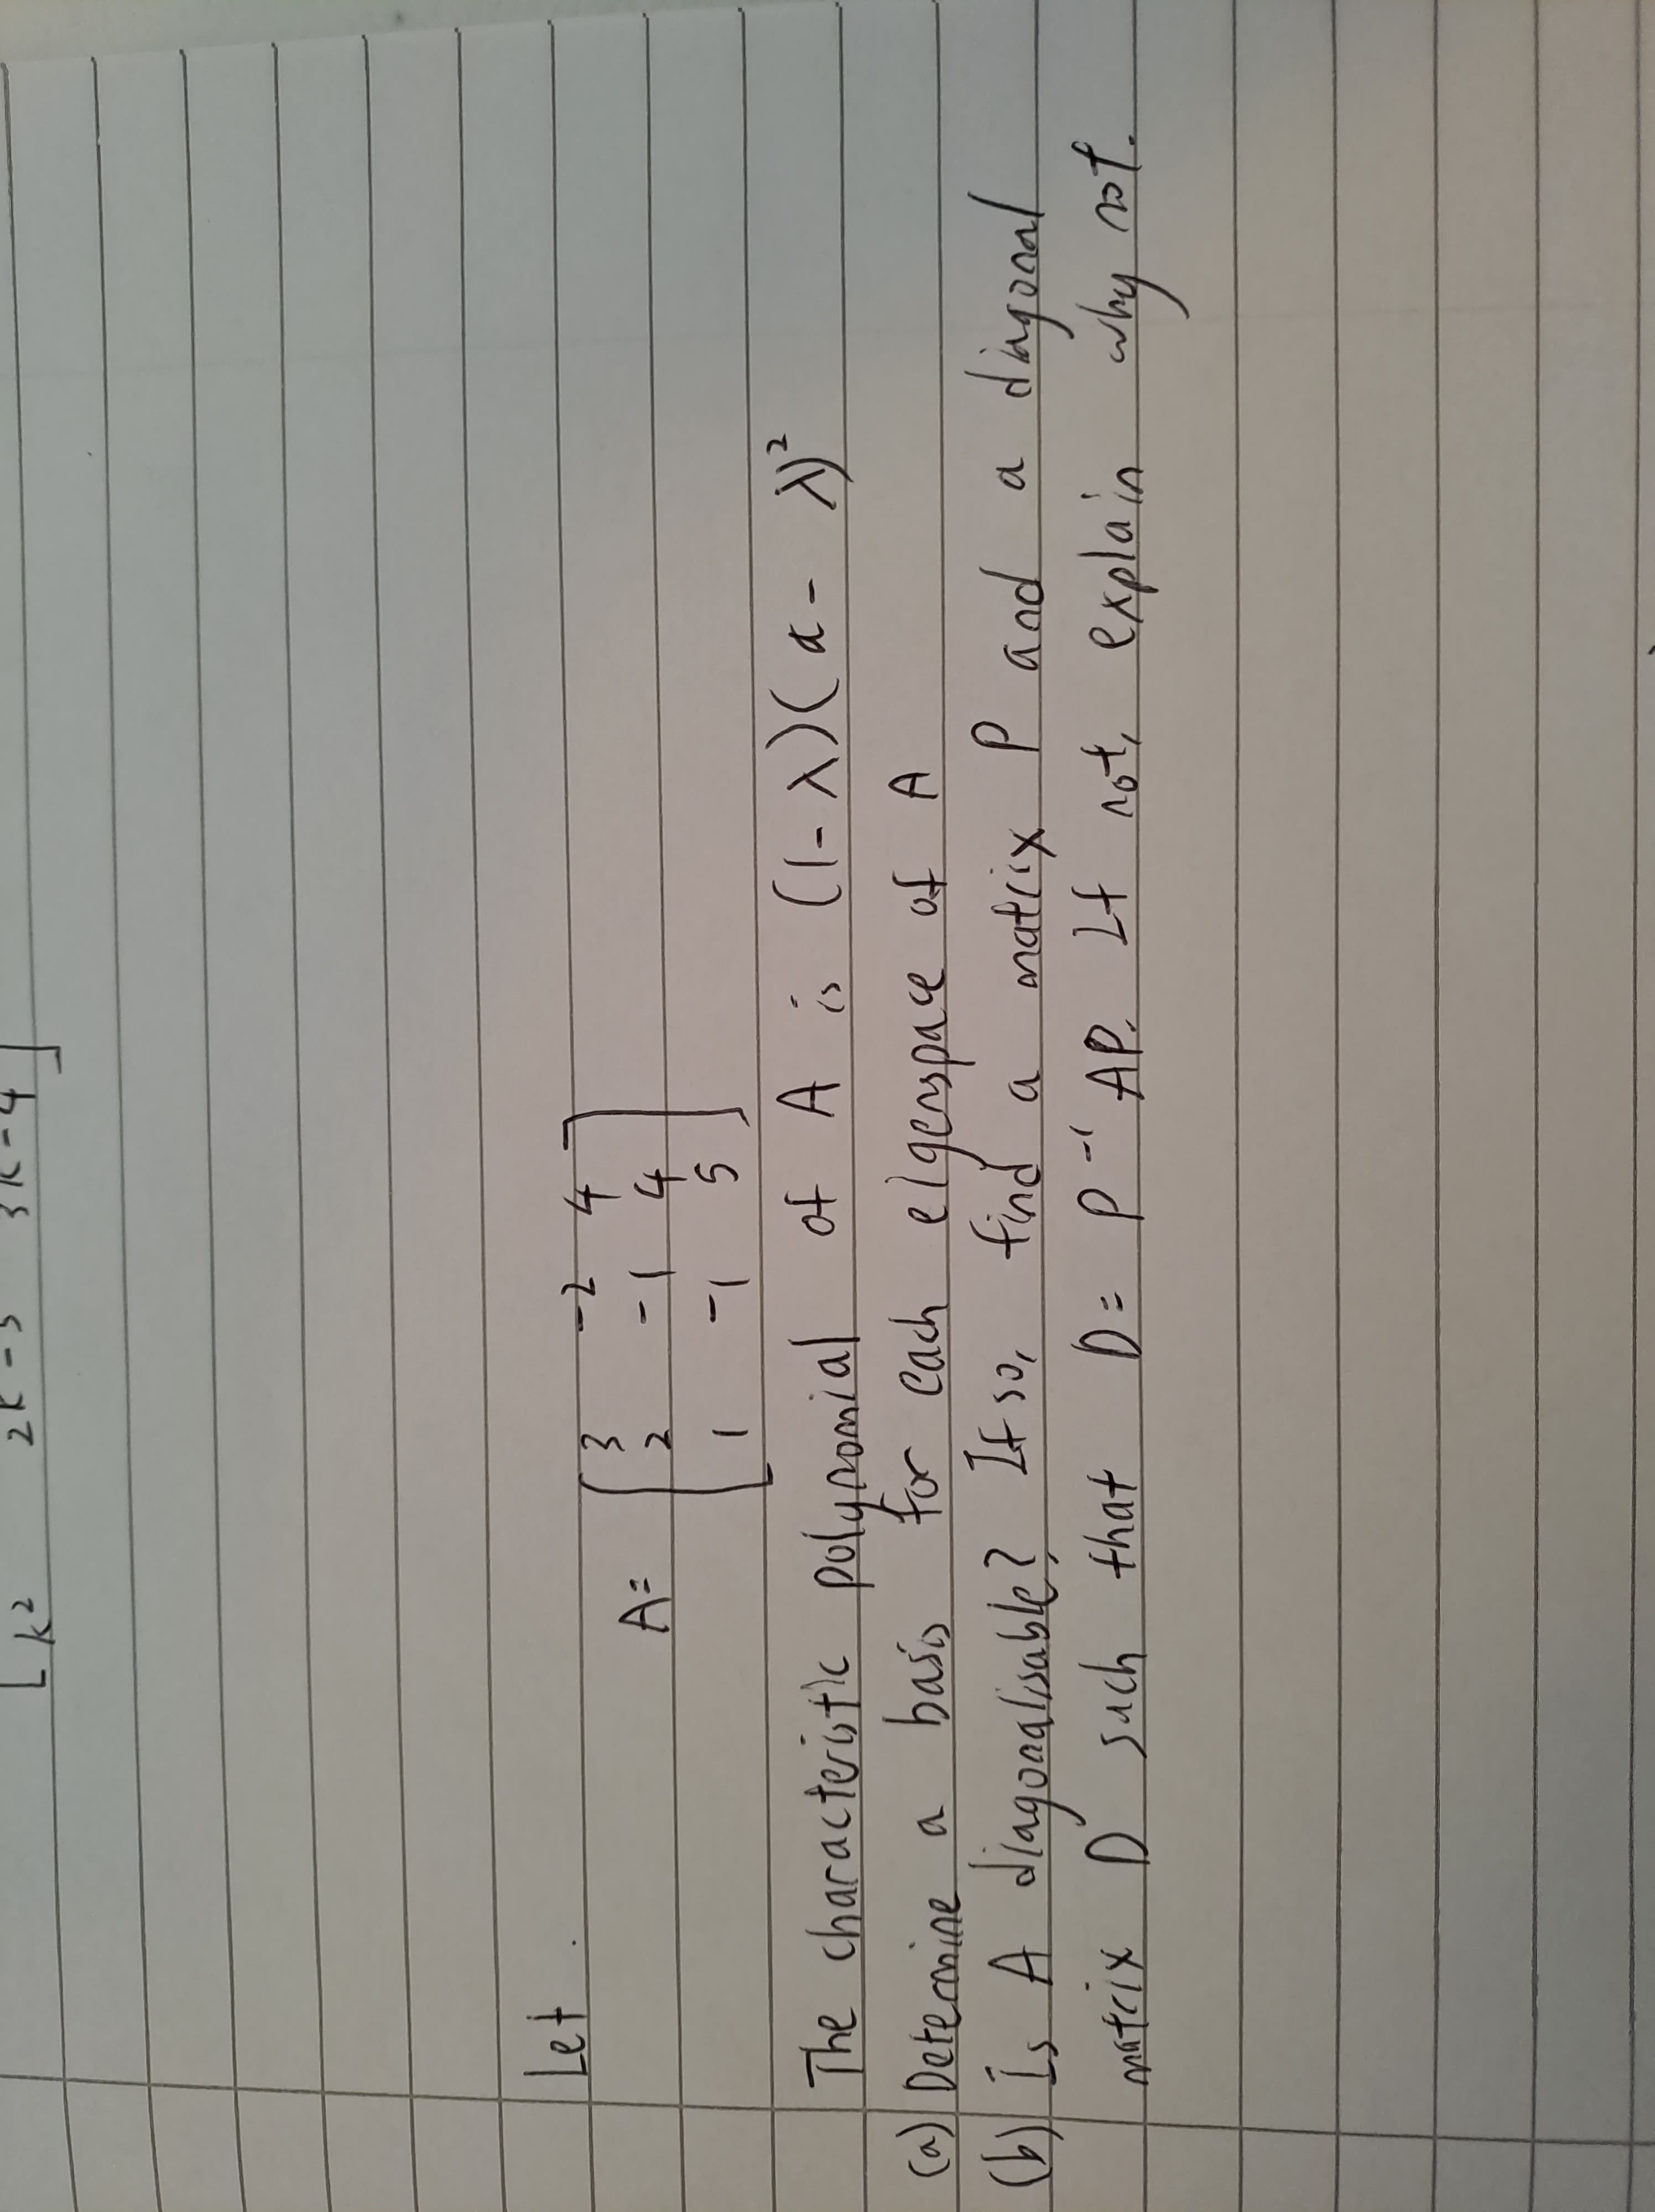 [ k² 2k-5 3k-4 ]
Let
A= [ 3 -2 4
2 -1 4
1 -1 5 ]
The characteristic polynomial of A is (1-λ)(α-λ)²
(a) Determine a basis for each eigenspace of A
(b) Is A diagonalisable? If so, find a matrix P and a diagonal
matrix D such that D= P⁻¹AP. If not, explain why not.